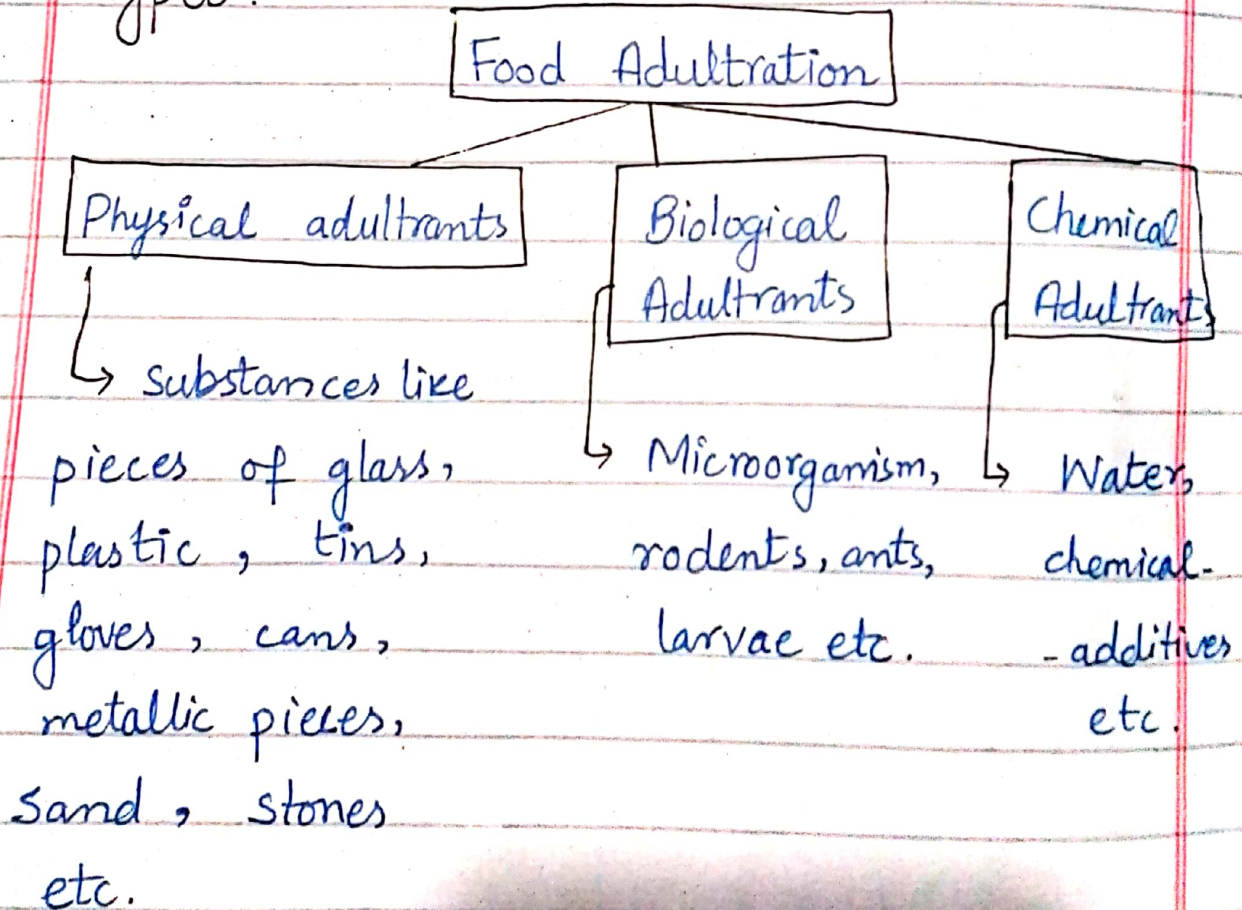 Food Adultration
Physical adultrants
Biological
Adultrants
Chemical
Adultrants
substances like
pieces of glass,
plastic, tins,
gloves, cans,
metallic pieces,
sand, stones
etc.
Microorganism,
rodents, ants,
larvae etc.
Water,
chemical-
-additives
etc.